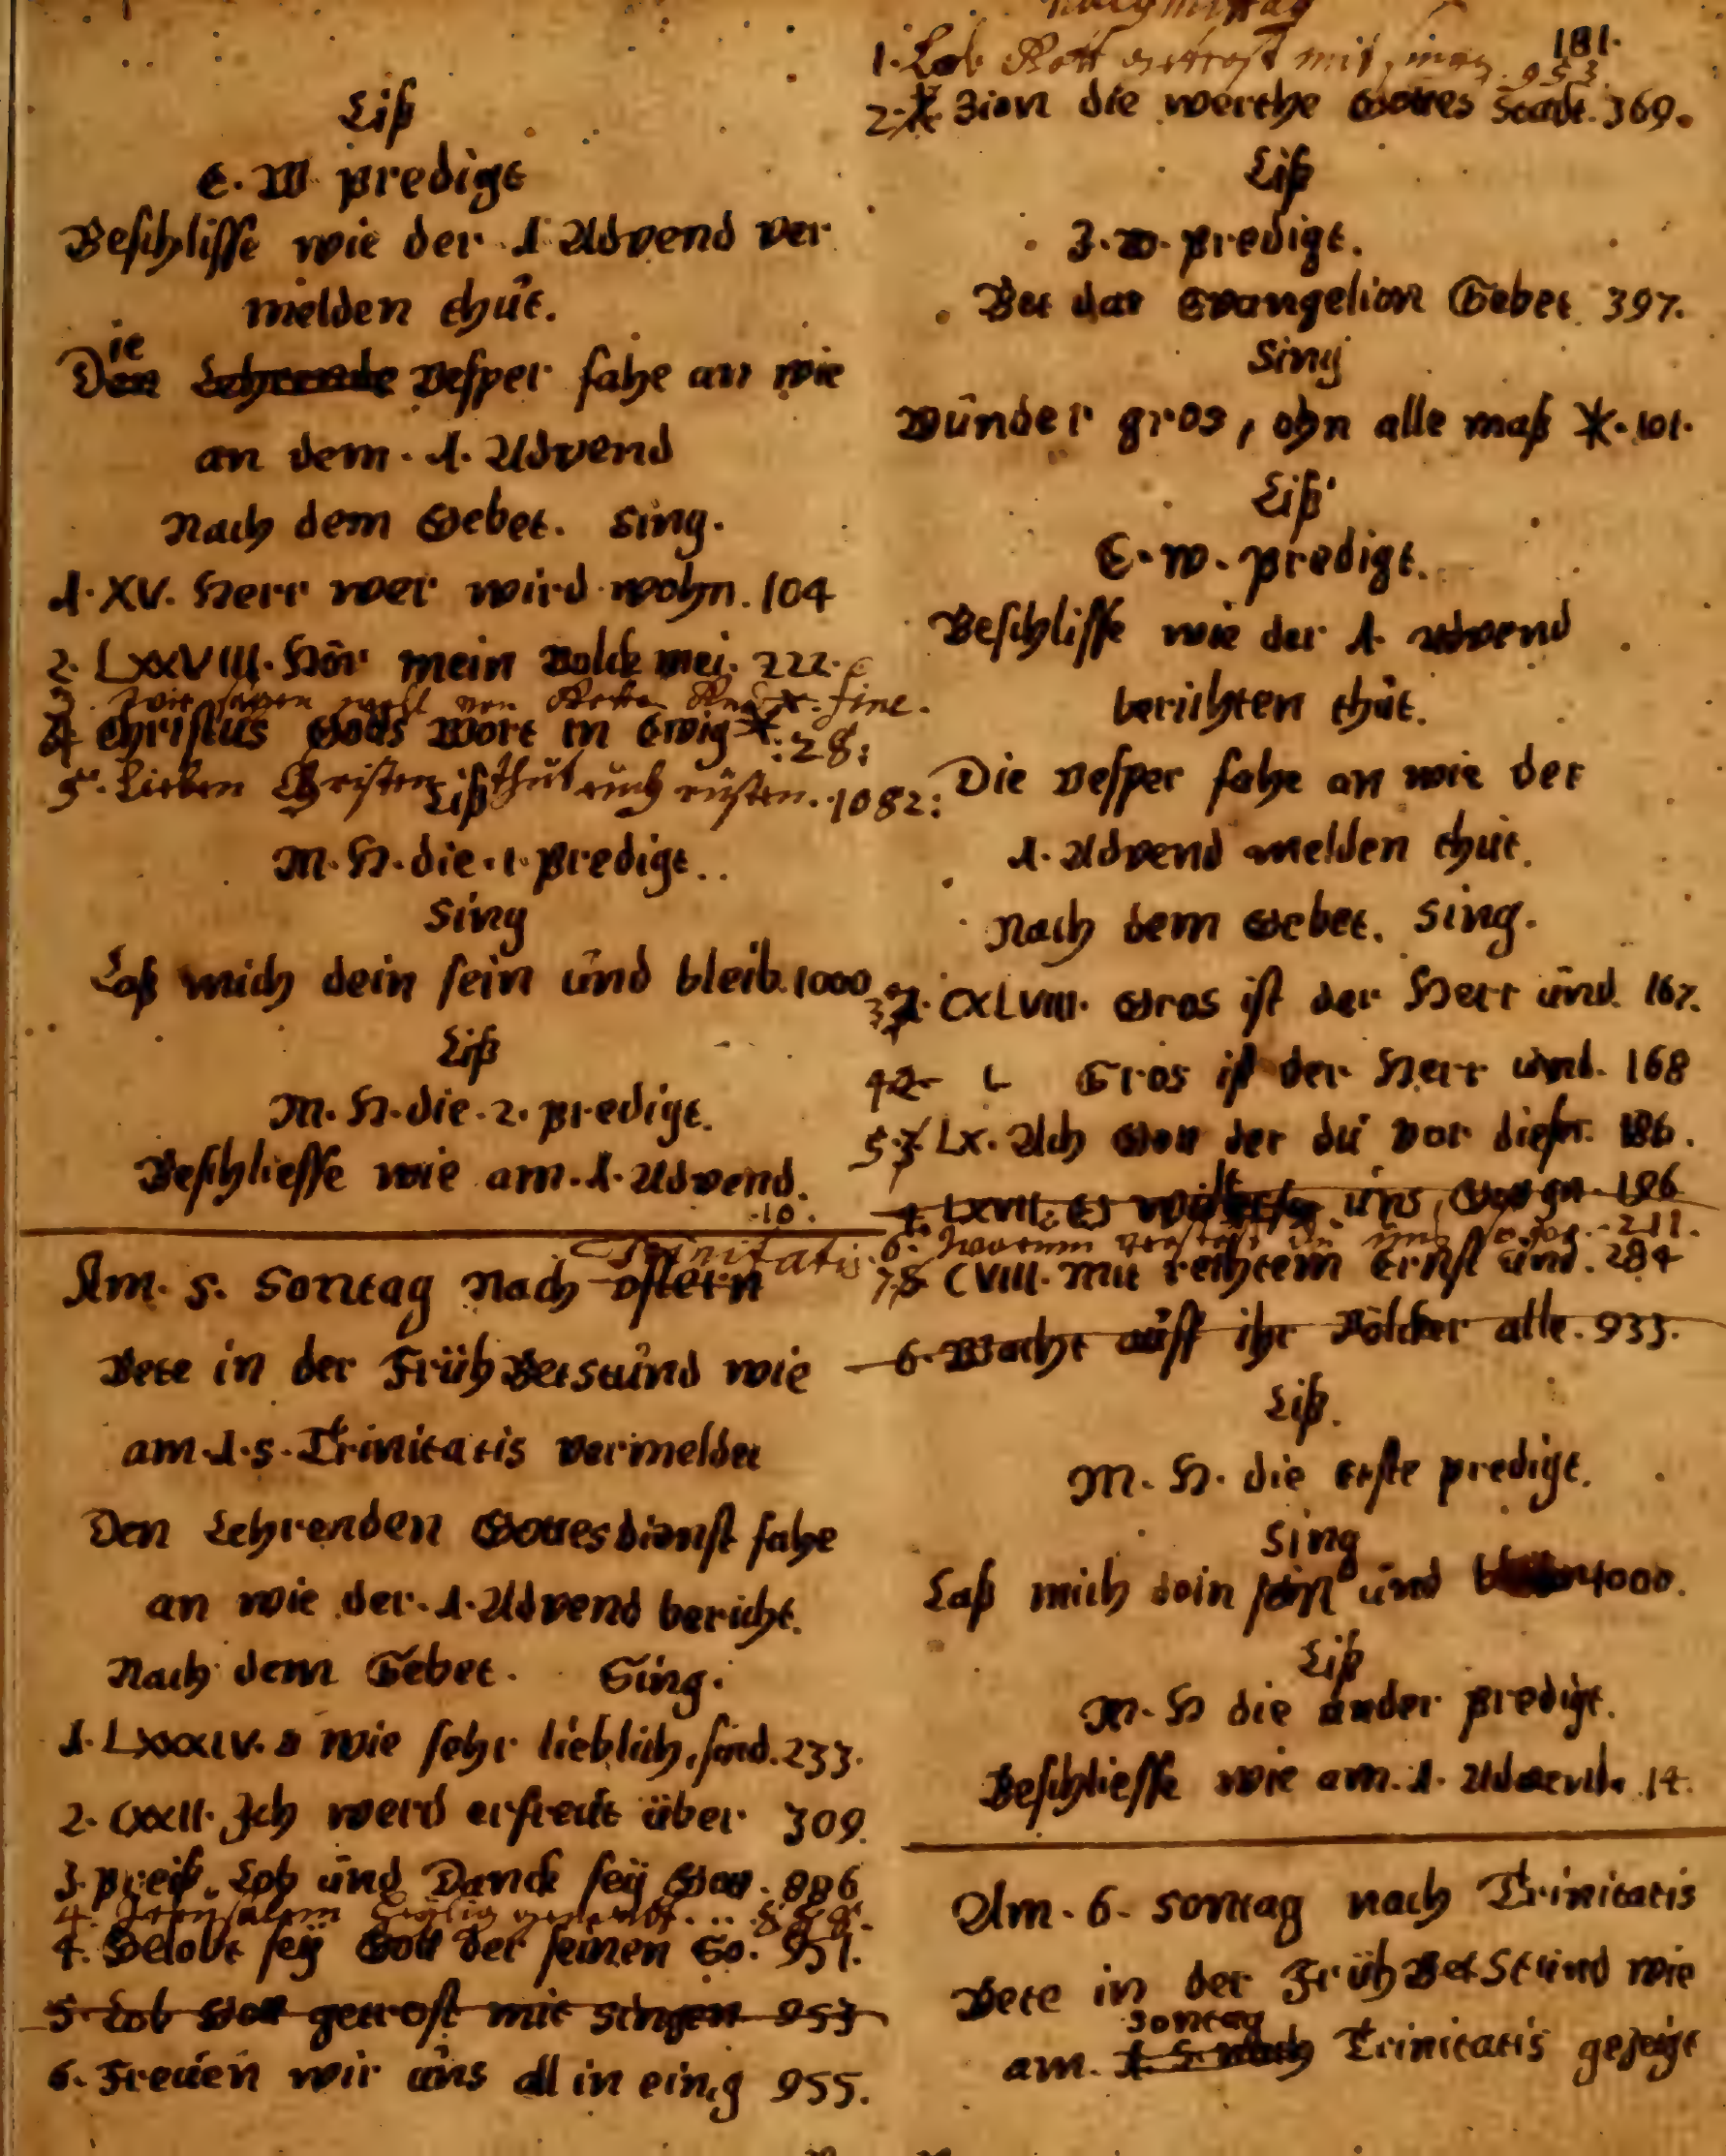 Liß
E. W. predigt
Beschlisse wie der 1 Advend ver
melden thüt.
Die Vesper fahe an wie
an dem. 1. Advend
Nach dem Gebet. Sing.
1. XV. Herr wer wird wohn. 104
2. LXXVIII. Hör mein Volck mei. 222.
3. Wir sagen fine.
4 Christus Gotts Wort in Ewig *. 28:
5. Lieben Christen thüt eüch rüsten. 1082:
Liß
M. H. die. 1. predigt..
Sing
Laß mich dein sein ünd bleib. 1000
Liß
M. H. die. 2. predigt.
Beschliesse wie am. 1. Advend.
10.
Trinitatis
Am. 5. Sontag Nach ostern
Bete in der Früh Betstünd wie
am. 1. S. Trinitatis Vermeldet
Den Lehrenden Gottesdienst fahe
an wie der. 1. Advend bericht.
Nach dem Gebet. Sing.
1. LXXXIV. wie sehr lieblich, sind. 233.
2. CXXII. Ich werd erfreüt über 309.
3. preiß, Lob ünd Danck seÿ Gott. 886
4. Jerusalem heylig genandt...
4. Gelobt seÿ Gott der seinen So. 951.
5. Lob Gott getrost mit singen 953
6. Freüen wir üns all in einig 955.
Nachmittag
181.
1. Lob Gott getrost mit singen. 953.
2. Zion die werthe Gottes Stadt. 369.
Liß
Z. W. predigt.
Bet dar Evangelion Gebet. 397.
Sing
Wünder gros, ohn alle maß *. 101.
Liß
E. W. predigt.
Beschlisse wie der 1. Advend
berichten thüt.
Die Vesper fahe an wie der
1. Advend melden thüt.
Nach dem Gebet. Sing.
3 CXLVIII. Gros ist der Herr ünd. 167.
4 L Gros ist der Herr ünd. 168
5 LX. Ach Gott der dü vor dieser. 186.
4. LXVII. Es üns, Gott gn. 196
6. Warum dü üns so gar. 211.
7 CVIII. Mit rechtem Ernst ünd. 284
6. Wacht aüff ihr Völcker alle. 933.
Liß.
M. H. die erste predigt.
Sing
Laß mich dein sein ünd 1000.
Liß
M. H die ander predigt.
Beschliesse wie am. 1. Advend. 14.
Am. 6. Sontag nach Trinitatis
Bete in der Früh BetStünd wie
Sontag
am. 1. S. nach Trinitatis gezeigt